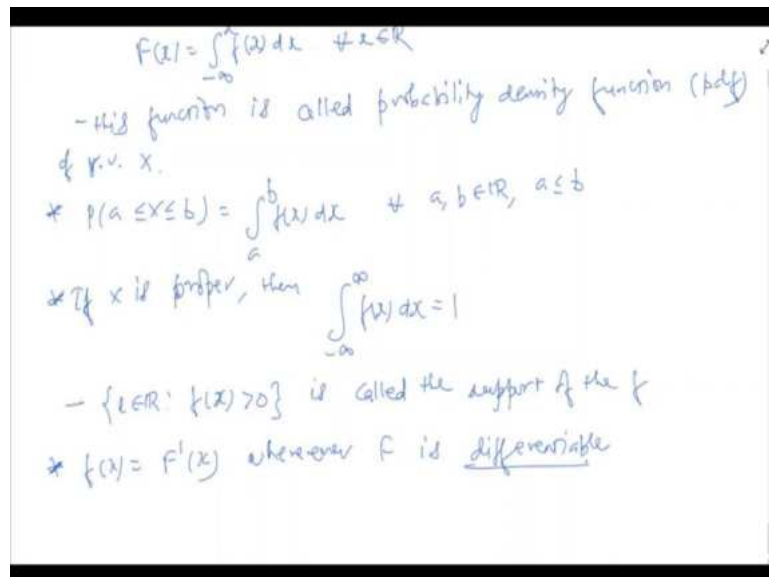 F(x) = ∫_{-∞}^{x} f(x) dx ∀ x ∈ ℝ
- this function is called probability density function (pdf)
of r.v. X.
* P(a ≤ X ≤ b) = ∫_a^b f(x) dx ∀ a, b ∈ ℝ, a ≤ b
* If X is proper, then ∫_{-∞}^{∞} f(x) dx = 1
- {x ∈ ℝ : f(x) > 0} is called the support of the f
* f(x) = F'(x) whereever F is differentiable